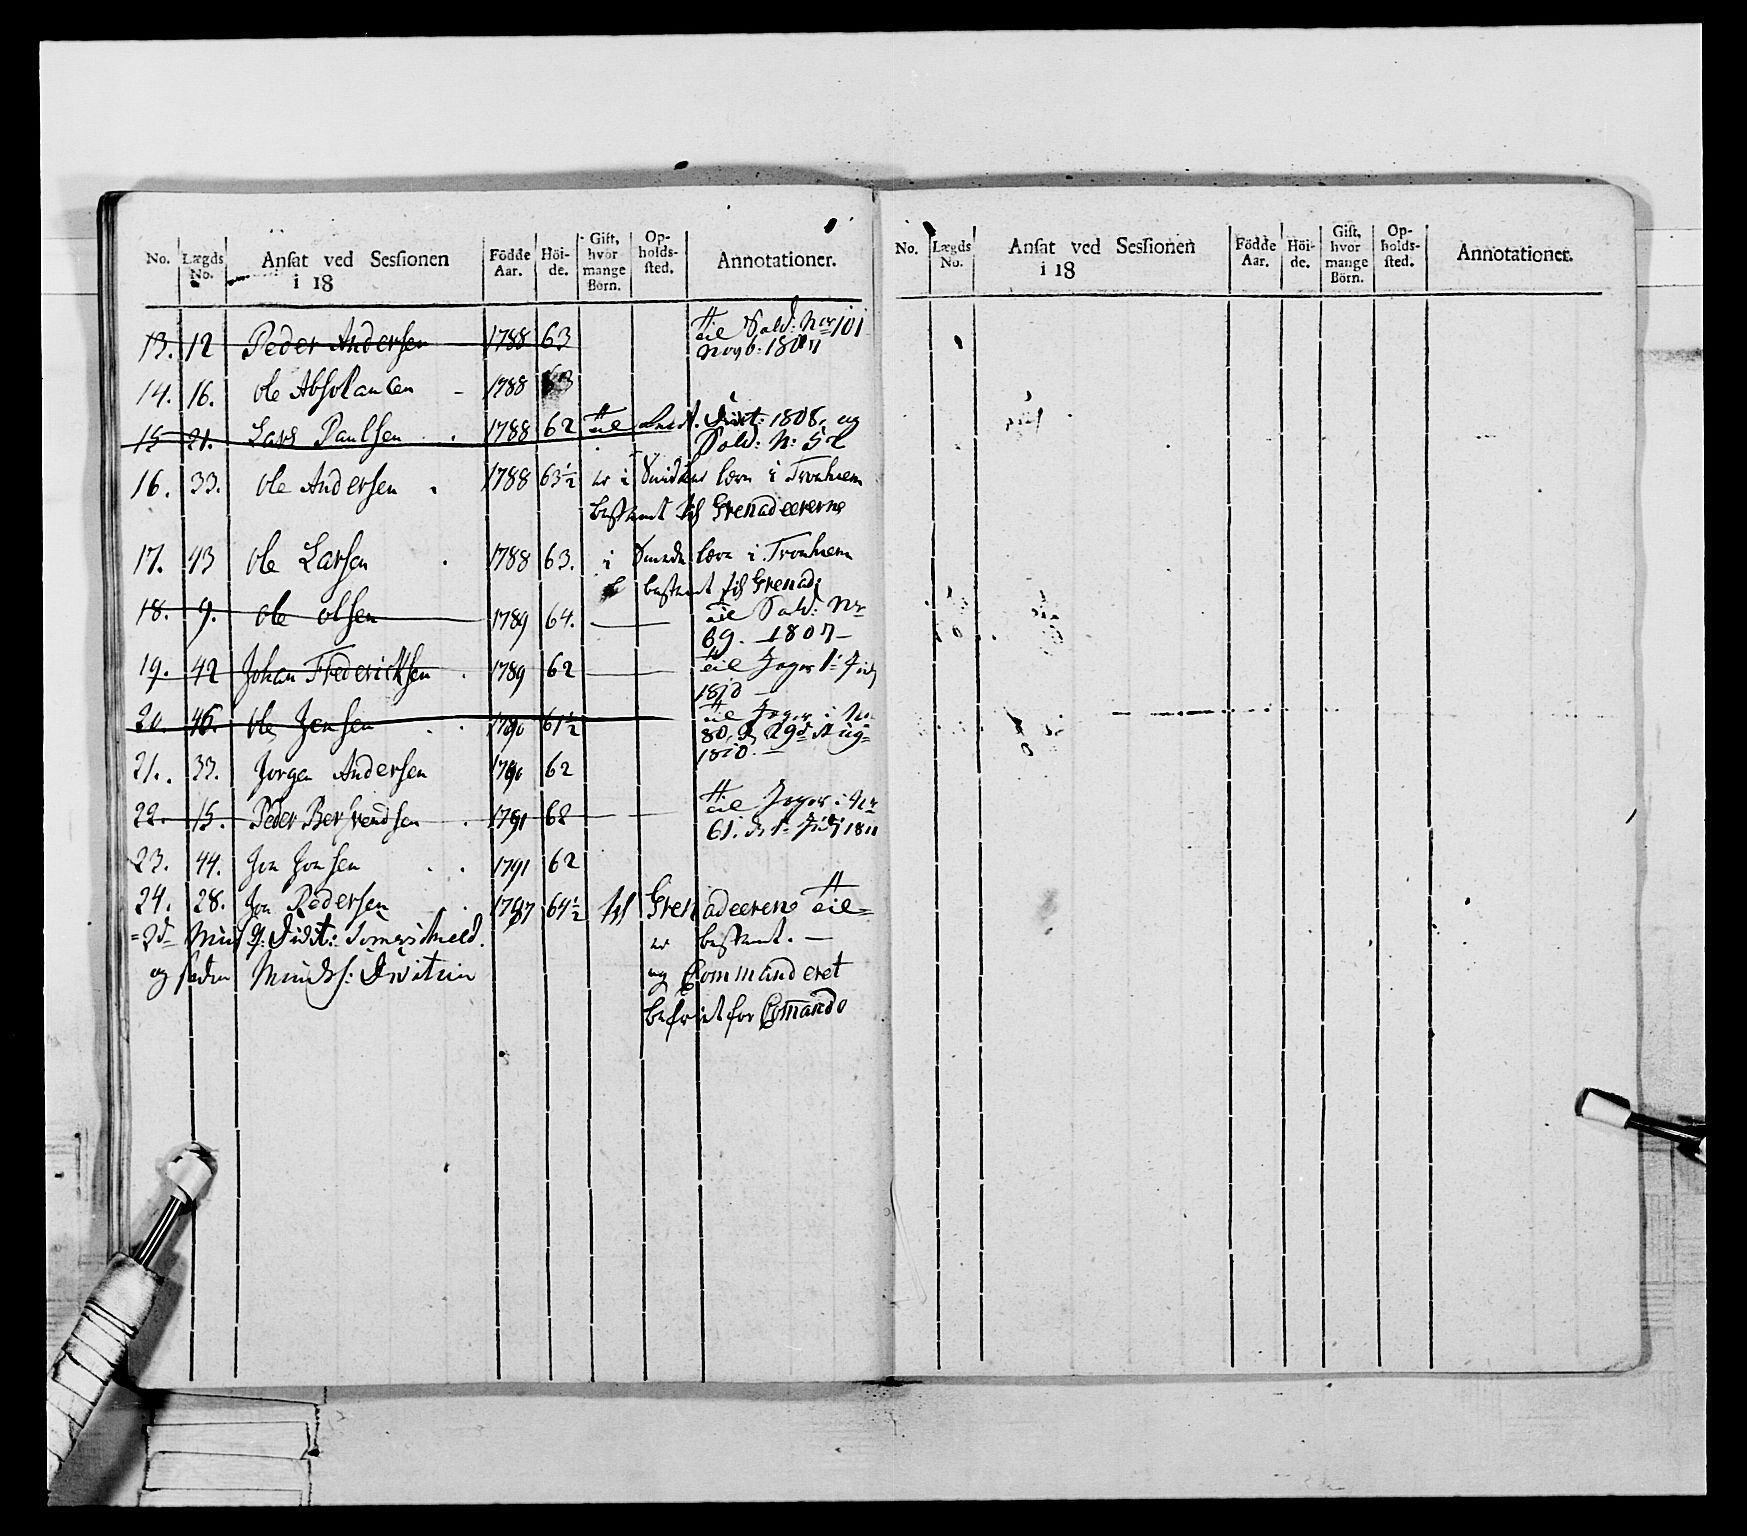 No. Lægds No. Ansat ved Sessionen i 18 Födde Aar. Höi-de. Gift, hvor mange Börn. Op-holds-sted. Annotationer.
13. 12 Peder Andersen 1788 63 til Sold: No 101
Novb: 180
14. 16. Ole Absolansen 1788 63
15 21. Lars Paulsen 1788 62 til Distr: 1808, og
Sold: N: 52
16. 33. Ole Andersen 1788 63½ er i Snidker lære i Tronhiem
bestemt til Grenadeererne
17. 43 Ole Larsen 1788 63. i Smede lære i Tronhiem
bestemt til Grenad:
18. 9. Ole Olsen 1789 64. til Sold: Nr
69. 1807
19. 42 Johan Fredericksen 1789 62 til Jæger
1810
20. 46. Ole Jensen 1790 61½ til Jæger No
80, d 29d Aug
1810.
21. 33. Jørgen Andersen 1790 62
22. 15. Peder Bersvendsen 1791 62 til Jæger Nr
61. d 1 1811
23. 44. Jon Jonsen 1791 62
24. 28. Jon Pedersen 1787 64½ til Grenadeerene til=
er bestemt.
og siden Munds: Divition og Commanderet
befriet for Comando
No. Lægds No. Ansat ved Sessionen i 18 Födde Aar. Höi-de. Gift, hvor mange Börn. Op-holds-sted. Annotationer.